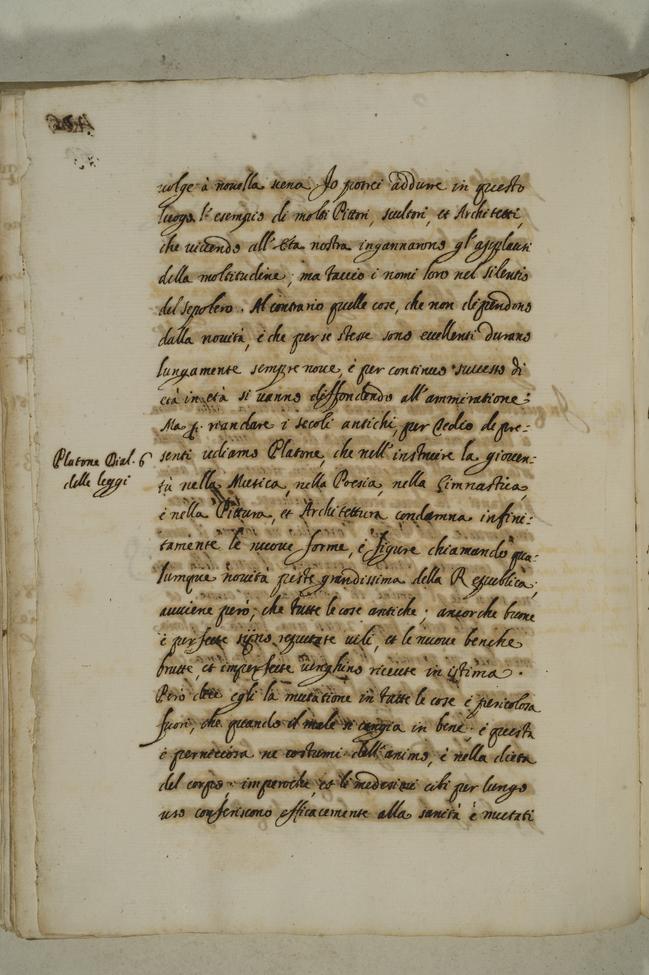 uolge à nouella scena. Io potrei addurre in questo
luogo l'esempio di molti Pittori, scultori, et Architetti,
che uiuendo all'Età nostra ingannarono gl'applausi
della moltitudine; ma taccio i nomi loro nel silentio
del sepolcro. Al contrario quelle cose, che non dipendono
dalla nouità, è che per se stesse sono eccellenti durano
lungamente sempre noue, è per continuo successo di
età in età si uanno diffondendo all'ammiratione:
Ma p. riandare i secoli antichi, per tedio de pre-
senti udiamo Platone, che nell'instruire la giouen-
Platone Dial. 6
delle leggi
tù nella Musica, nella Poesia, nella Ginnastica,
è nella Pittura, et Architettura condamna infini-
tamente le nuoue forme, è figure chiamando qua-
lumque nouità peste grandissima della Republica;
auuiene però, che tutte le cose antiche; ancorche buone
è perfette siano reputate uili, et le nuoue benche
brutte, et imperfette uenghino riceuute in istima.
Però dice egli la mutatione in tutte le cose è pericolosa
fuori, che quando il male si cangia in bene, è questa
è perniciosa ne costumi dell'animo, è nella dieta
del corpo; imperoche, et li medesimi cibi per lungo
uso conferiscono efficacemente alla sanità è mutati